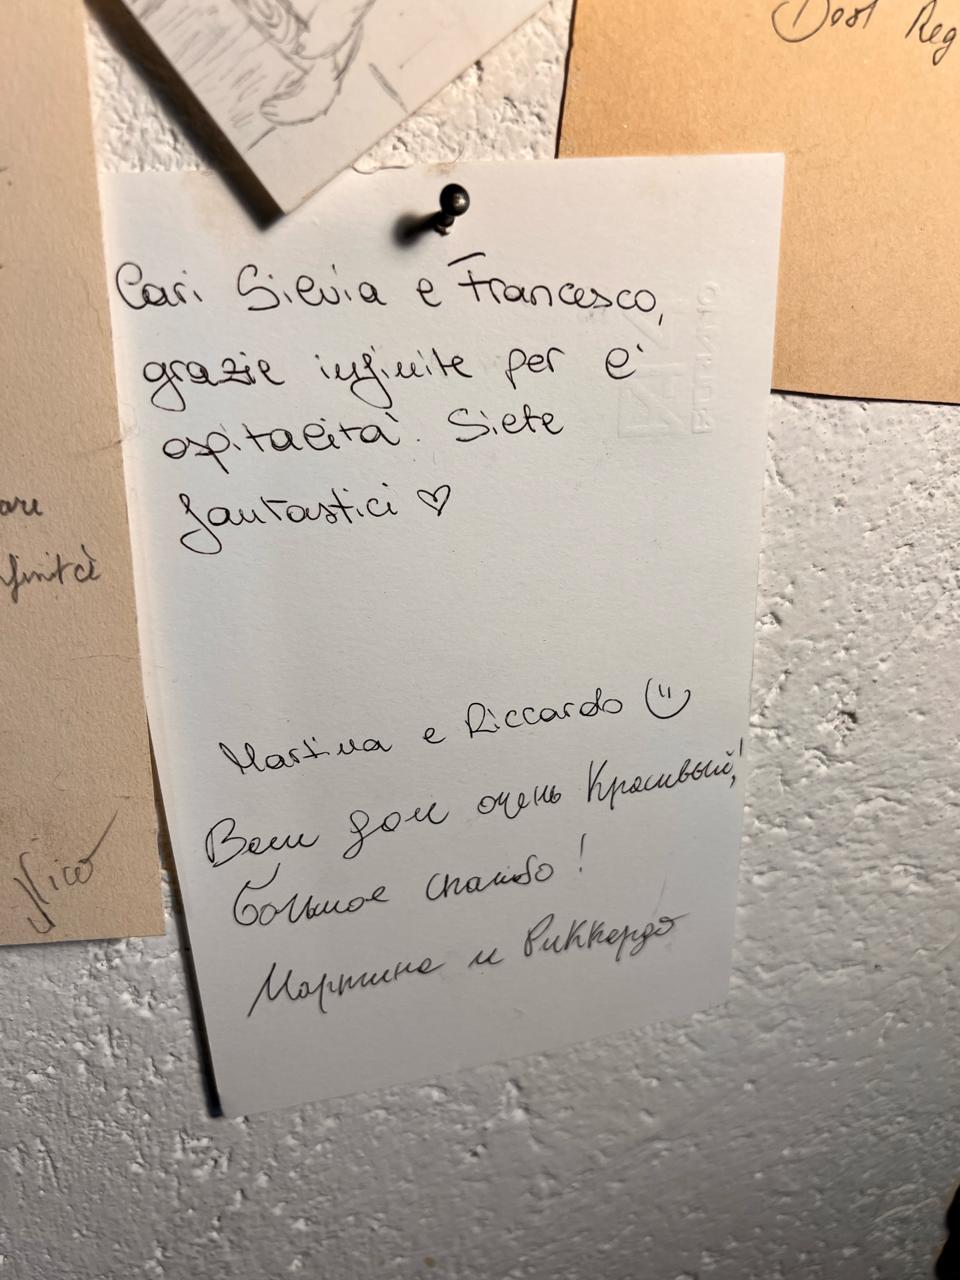 Best Reg
Cari Silvia e Francesco,
grazie infinite per l'
ospitalità. Siete
fantastici ♡
Martina e Riccardo
Ваш дом очень Красивый,!
большое спасибо!
Мартина и Риккардо
are
Nico
FABRIANO